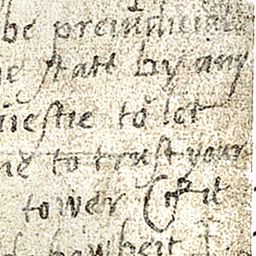 be preiudiciall
state by any
iestie to let
to trust your
tower (if it
howbeit